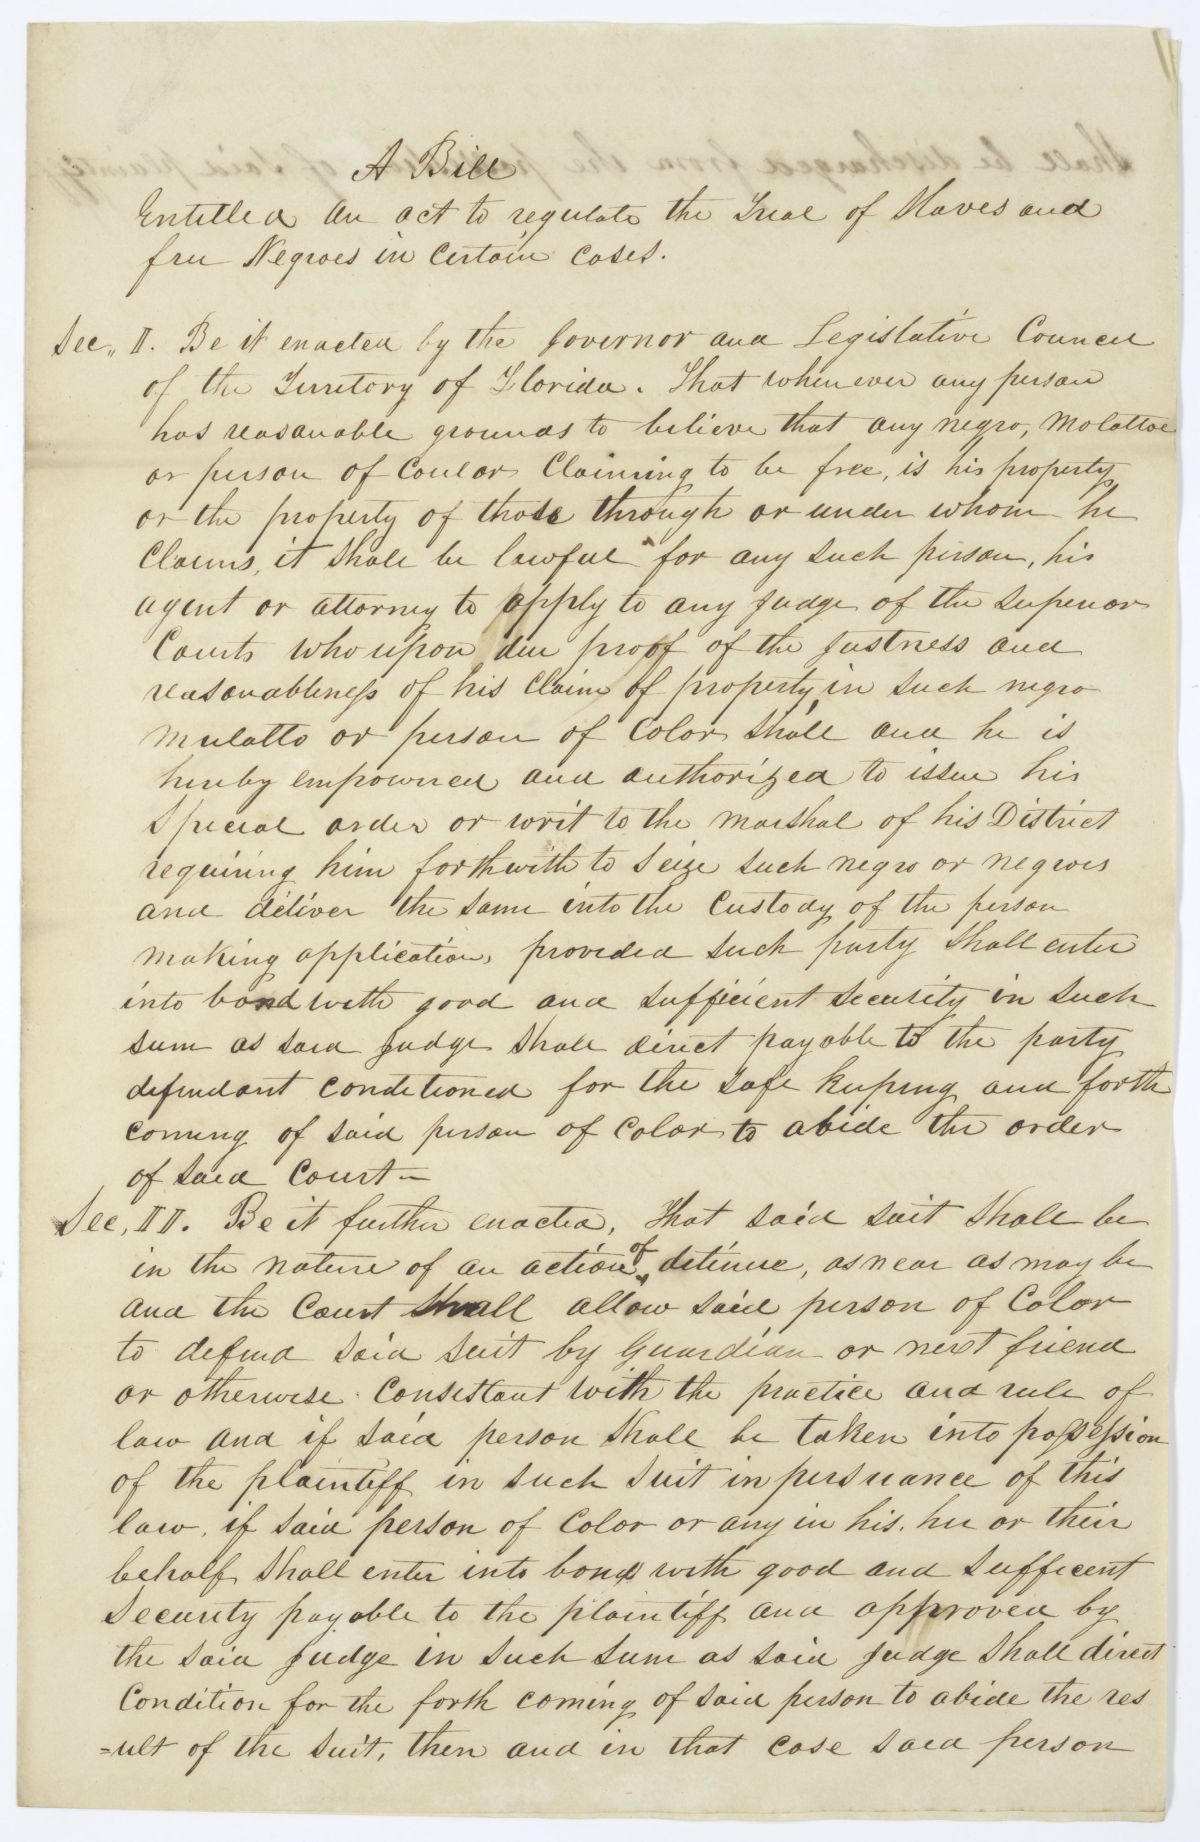 A Bill
Entitled An act to regulate the Trial of Slaves and
free Negroes in Certain cases.
Sec,, I. Be it enacted by the Governor and Legislative Council
of the Territory of Florida. That whenever any person
has reasonable grounds to believe that any negro, Molattoe
or person of Coulor Claiming to be free, is his property
or the property of those through or under whom he
Claims, it Shall be lawful for any such person, his
agent or attorney to apply to any judge of the Superior
Courts who upon due proof of the justness and
reasonableness of his Claim of property in such negro
Mulatto or person of Color Shall and he is
hereby empowered and authorized to issue his
Special order or writ to the Marshal of his District
requiring him forthwith to Seize such negro or negroes
and deliver the same into the Custody of the person
making application, provided such party Shall enter
into bond with good and sufficient security in such
sum as said judge Shall direct payable to the party
defendant conditioned for the safe keeping and forth
coming of said person of Color to abide the order
of said Court—
Sec, II. Be it further enacted, That said suit Shall be
in the nature of an action of detinue, as near as may be
and the Court Shall allow said person of Color
to defend said suit by Guardian or next friend
or otherwise Consistant with the practice and rule of
law and if said person Shall be taken into possession
of the plaintiff in such suit in persuance of this
law, if said person of Color or any in his, her or their
behalf Shall enter into bond with good and sufficent
Security payable to the plaintiff and approved by
the said judge in such sum as said judge Shall direct
Condition for the forth coming of said person to abide the res
=ult of the suit, then and in that case said person